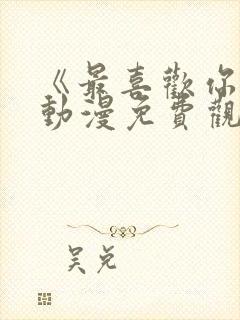 《最喜歡你
動漫免費觀
吴兌